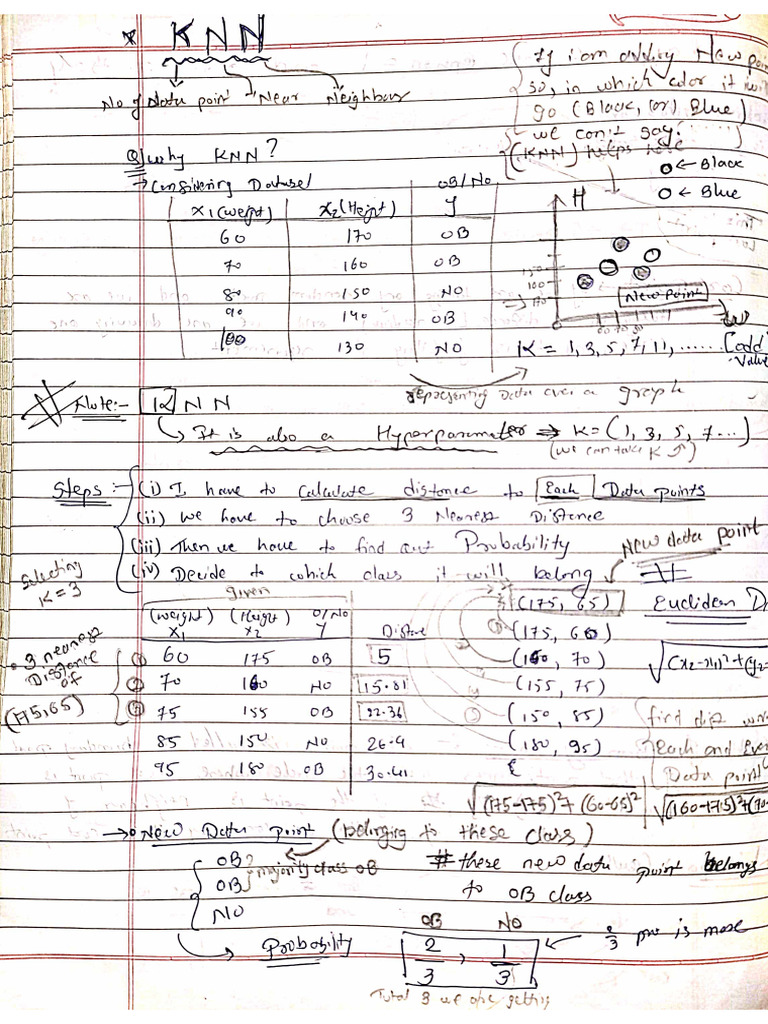 * KNN
No of Data point → Near Neighbour
If i am adding New point
so, in which color it will
go (Black, (or) Blue)
we can't say!
(KNN) helps here
Q) why KNN?
→ Considering Dataset
OB/No
x1(weight) x2(Height) y
60 170 OB
70 160 OB
80 150 NO
90 140 OB
100 130 NO
H
← Black
← Blue
150
100
170
New point
60 70 80
W
K = 1, 3, 5, 7, 11, ...... [odd value
representing Data over a graph
Note:- KNN
↳ It is also a Hyperparameter ⇒ K = (1, 3, 5, 7...)
(we can take K ↗)
Steps :- (i) I have to calculate distance to Each Data points
(ii) we have to choose 3 Nearest Distance
(iii) Then we have to find out Probability
(iv) Decide to which class it will belong
Selecting
K = 3
New data point
given
(weight) (Height) O/No
x1 x2 y Distance
60 175 OB 5
70 160 NO 15.81
75 155 OB 22.36
85 150 NO 26.9
95 180 OB 30.41
① ② ③
3 nearest
Distance
of
(175,65)
(175, 65)
(175, 60)
(160, 70)
(155, 75)
(150, 85)
(180, 95)
Euclidean D
√(x2-x1)²+(y2-
find dist
Each and Every
Data point
√(175-175)²+(60-65)² √(160-175)²+(70-
→ New Data Point (belonging to these class)
OB
OB
NO
majority class OB
# these new data point belongs
to OB class
OB NO
→ Probability 2/3, 1/3 ← 2/3 is more
Total 3 we are getting